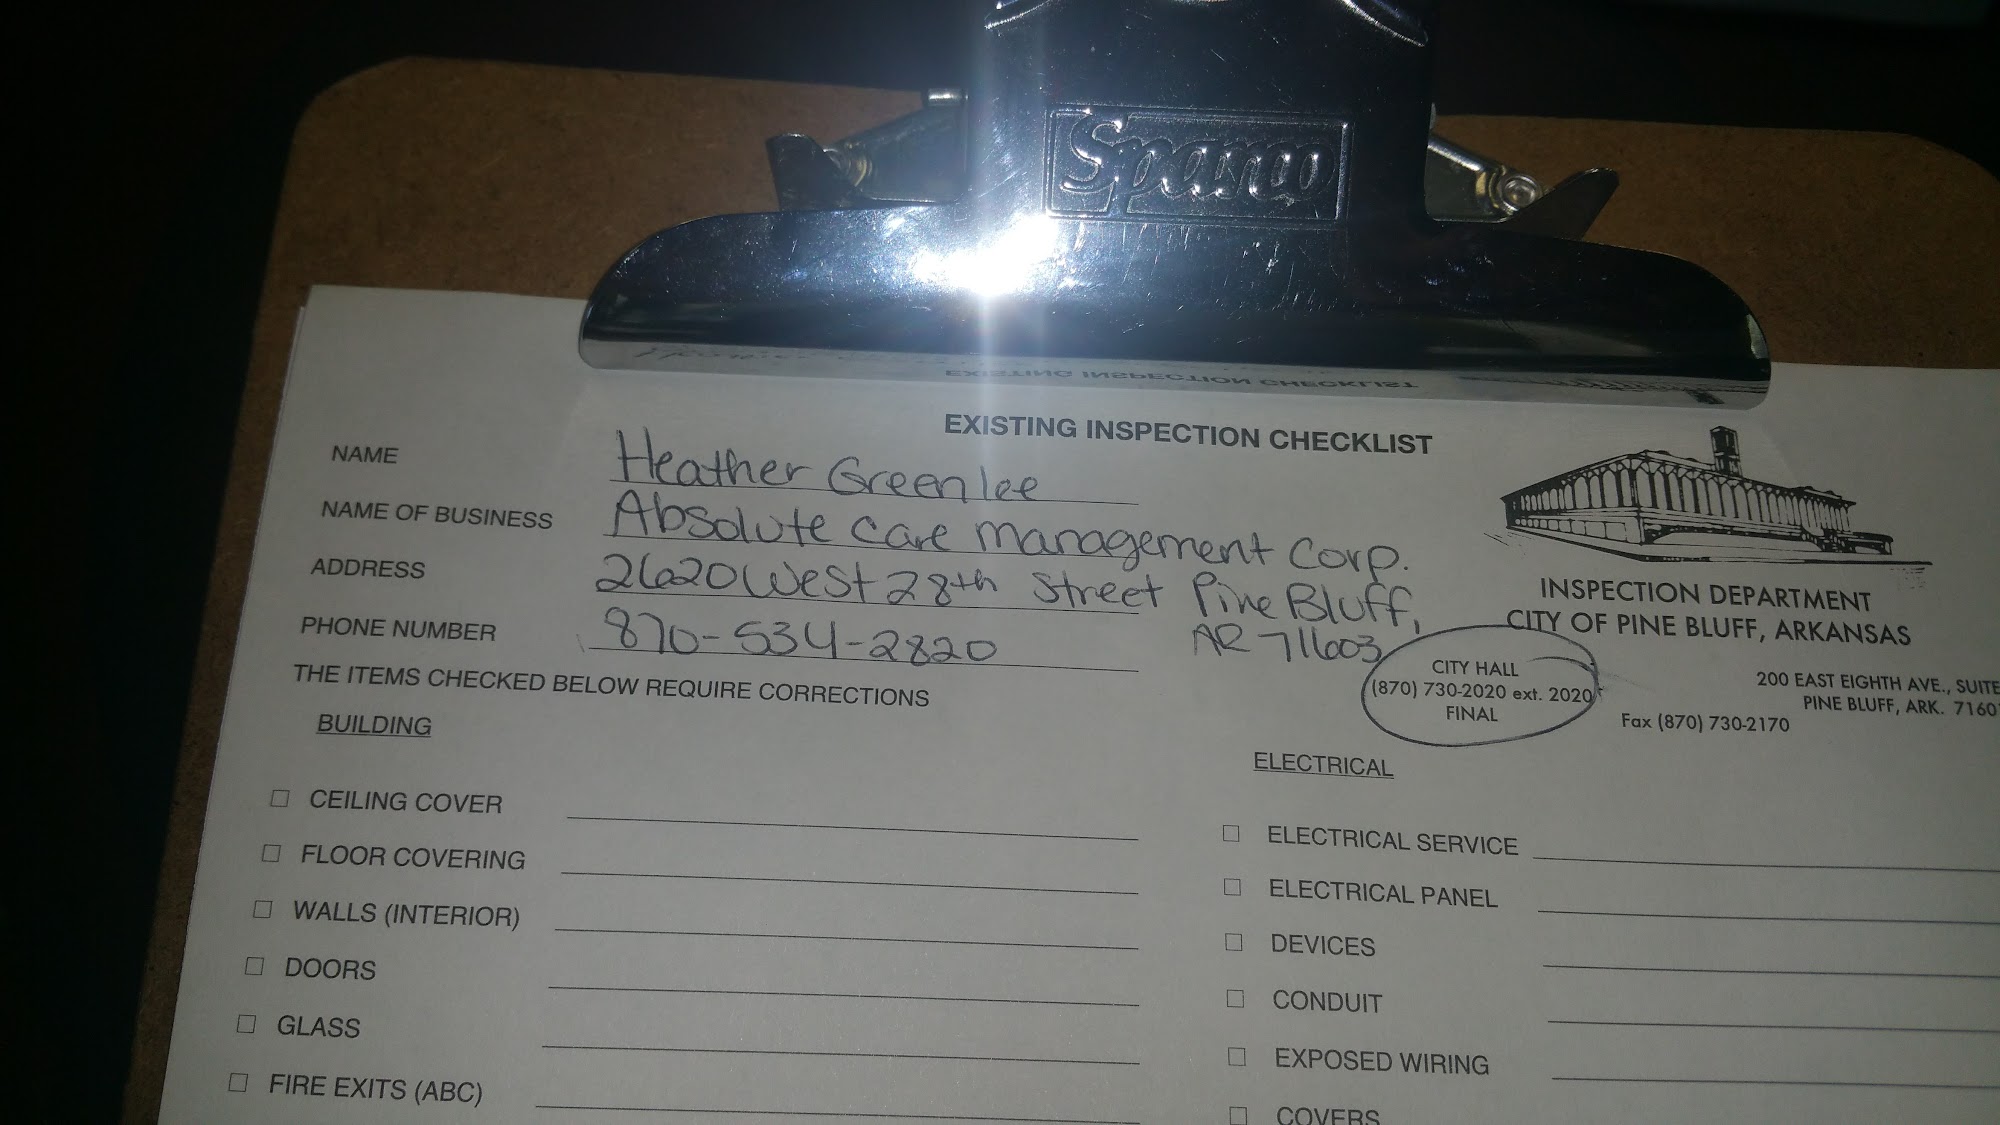 Sparco
EXISTING INSPECTION CHECKLIST
NAME Heather Greenlee
NAME OF BUSINESS Absolute Care Management Corp.
ADDRESS 2620 West 28th Street Pine Bluff,
AR 71603
PHONE NUMBER 870-534-2820
INSPECTION DEPARTMENT
CITY OF PINE BLUFF, ARKANSAS
CITY HALL
(870) 730-2020 ext. 2020
FINAL
200 EAST EIGHTH AVE., SUITE
PINE BLUFF, ARK.
Fax (870) 730-2170
THE ITEMS CHECKED BELOW REQUIRE CORRECTIONS
BUILDING
CEILING COVER
FLOOR COVERING
WALLS (INTERIOR)
DOORS
GLASS
FIRE EXITS (ABC)
ELECTRICAL
ELECTRICAL SERVICE
ELECTRICAL PANEL
DEVICES
CONDUIT
EXPOSED WIRING
COVERS